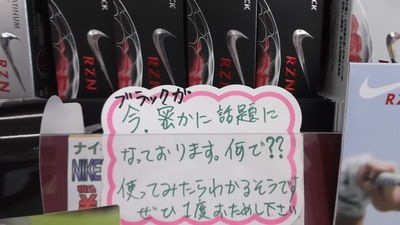 PLATINUM
RZN
CK
RZN
RZN
RZN
ブラックが
今、密かに話題に
なっております。何で??
使ってみたらわかるそうです
ぜひ1度おためし下さい
ナイ
NIKE
¥
RZN